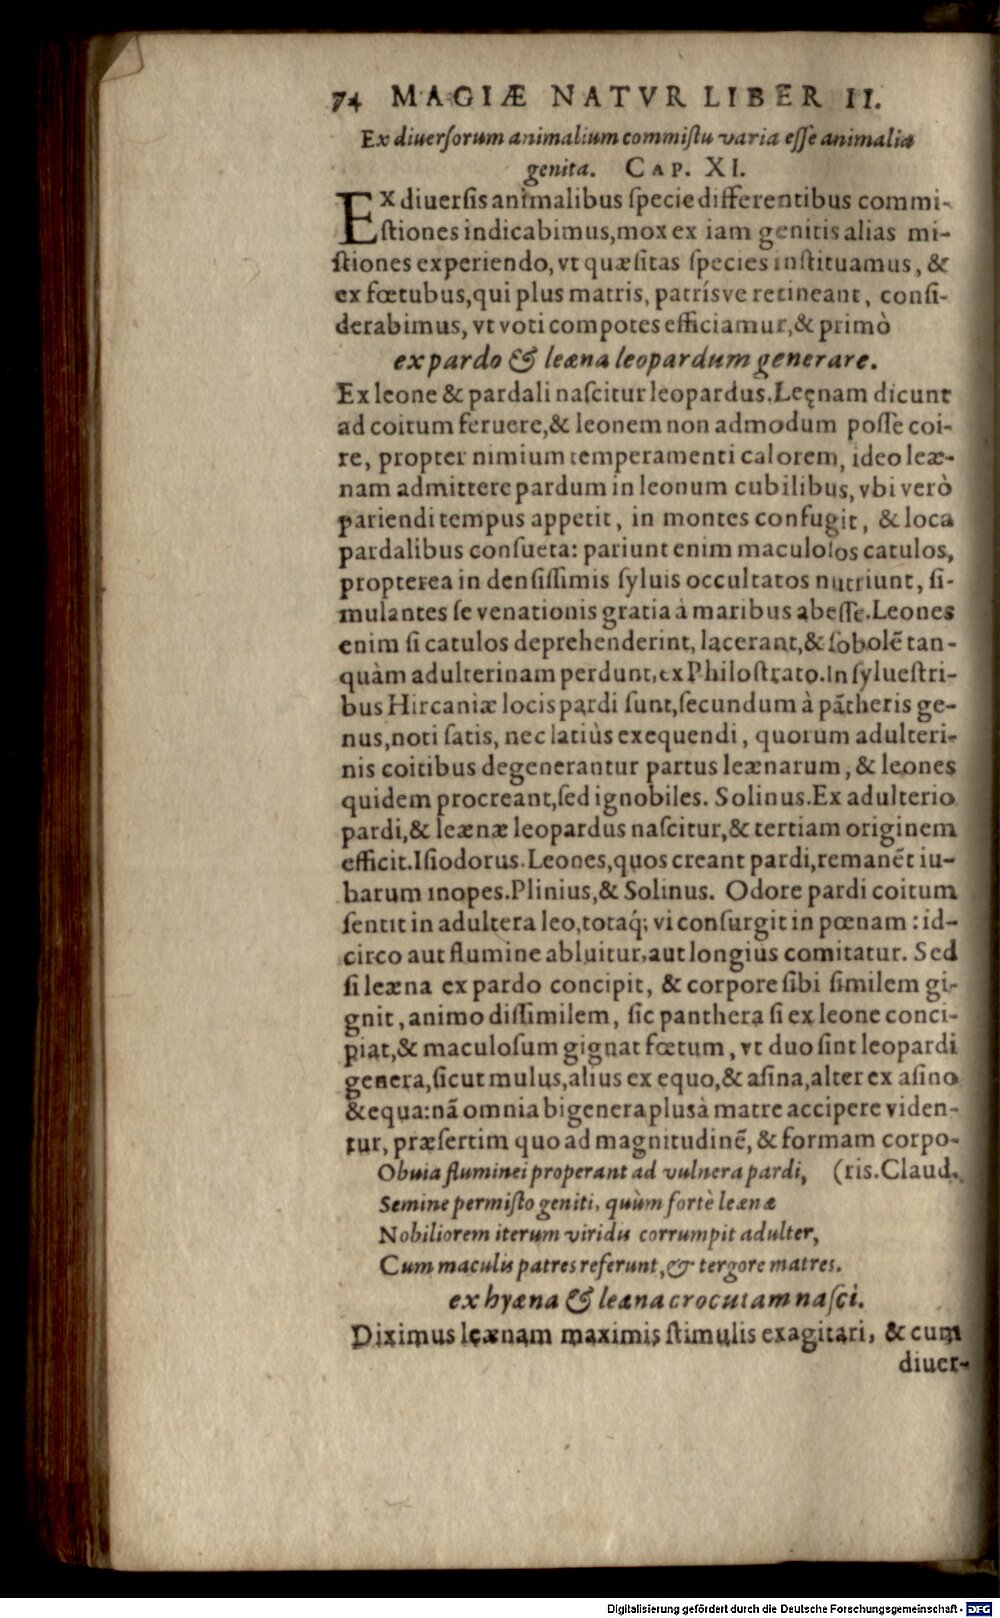 74 MAGIÆ NATVR LIBER II.
Ex diuerſorum animalium commiſtu varia eſſe animalia
genita. CAP. XI.
EX diuerſis animalibus ſpecie differentibus commi-
ſtiones indicabimus, mox ex iam genitis alias mi-
ſtiones experiendo, vt quæſitas ſpecies inſtituamus, &
ex fœtubus, qui plus matris, patrísve retineant, conſi-
derabimus, vt voti compotes efficiamur, & primò
ex pardo & leæna leopardum generare.
Ex leone & pardali naſcitur leopardus. Leęnam dicunt
ad coitum feruere, & leonem non admodum poſſe coi-
re, propter nimium temperamenti calorem, ideo leæ-
nam admittere pardum in leonum cubilibus, vbi verò
pariendi tempus appetit, in montes confugit, & loca
pardalibus conſueta: pariunt enim maculoſos catulos,
propterea in denſiſſimis ſyluis occultatos nutriunt, ſi-
mulantes ſe venationis gratia à maribus abeſſe. Leones
enim ſi catulos deprehenderint, lacerant, & ſobolẽ tan-
quàm adulterinam perdunt, ex Philoſtrato. In ſylueſtri-
bus Hircaniæ locis pardi ſunt, ſecundum à pãtheris ge-
nus, noti ſatis, nec latiùs exequendi, quorum adulteri-
nis coitibus degenerantur partus leænarum, & leones
quidem procreant, ſed ignobiles. Solinus. Ex adulterio
pardi, & leænæ leopardus naſcitur, & tertiam originem
efficit. Iſiodorus. Leones, quos creant pardi, remanẽt iu-
barum inopes. Plinius, & Solinus. Odore pardi coitum
ſentit in adultera leo, totaq́; vi conſurgit in pœnam: id-
circo aut flumine abluitur, aut longius comitatur. Sed
ſi leæna ex pardo concipit, & corpore ſibi ſimilem gi-
gnit, animo diſſimilem, ſic panthera ſi ex leone conci-
piat, & maculoſum gignat fœtum, vt duo ſint leopardi
genera, ſicut mulus, alius ex equo, & aſina, alter ex aſino
& equa: nã omnia bigenera plus à matre accipere viden-
tur, præſertim quo ad magnitudinẽ, & formam corpo-
Obuia fluminei properant ad vulnera pardi, (ris. Claud.
Semine permiſto geniti, quùm fortè leænæ
Nobiliorem iterum viridis corrumpit adulter,
Cum maculis patres referunt, & tergore matres.
ex hyæna & leæna crocutam naſci.
Diximus leænam maximis ſtimulis exagitari, & cum
diuer-
Digitalisierung gefördert durch die Deutsche Forschungsgemeinschaft - DFG